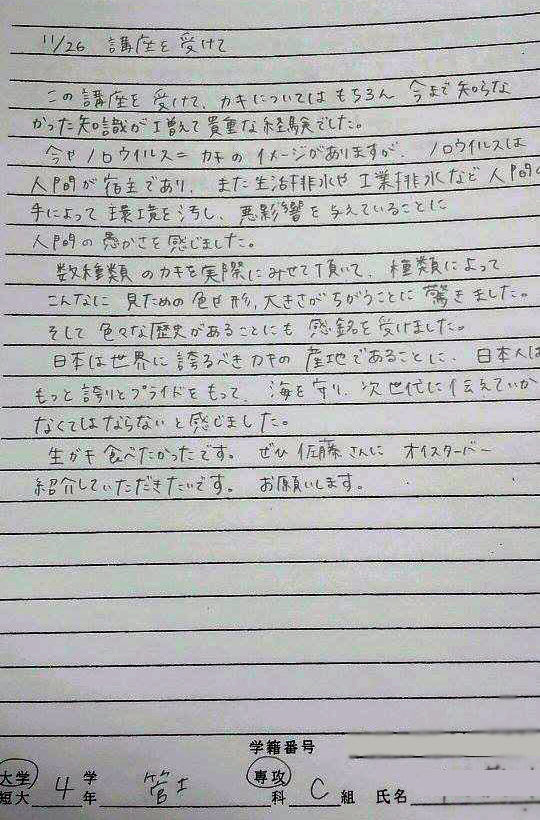 11/26 講座を受けて
この講座を受けて、カキについてはもちろん 今まで知らな
かった知識が増えて貴重な経験でした。
今やノロウイルス=カキのイメージがありますが、ノロウイルスは
人間が宿主であり、また生活排水や工業排水など人間の
手によって環境を汚し、悪影響を与えていることに
人間の愚かさを感じました。
数種類のカキを実際にみせて頂いて、種類によって
こんなに見ための色や形、大きさがちがうことに驚きました。
そして色々な歴史があることにも感銘を受けました。
日本は世界に誇るべきカキの産地であることに、日本人は
もっと誇りとプライドをもって、海を守り、次世代に伝えていか
なくてはならないと感じました。
生ガキ食べたかったです。ぜひ佐藤さんに オイスターバー
紹介していただきたいです。 お願いします。
学籍番号
大学 学 専攻
短大 4 年 管士 科 C 組 氏名